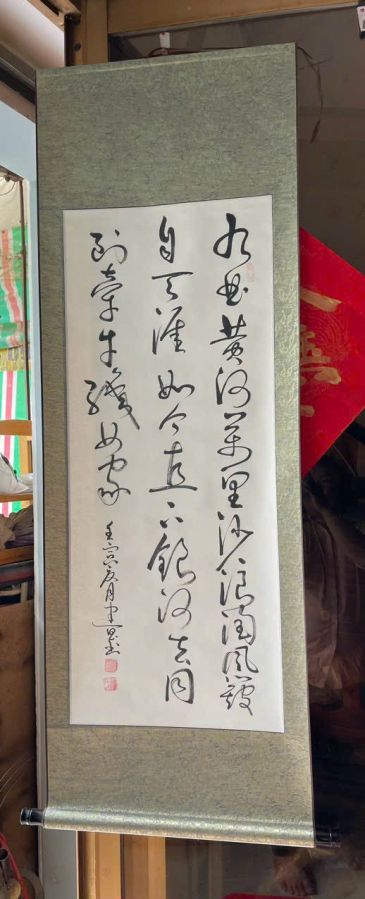 九曲黄河萬里沙浪淘風簸
自天涯如今直上銀河去同
到牽牛織女家
壬寅夏月